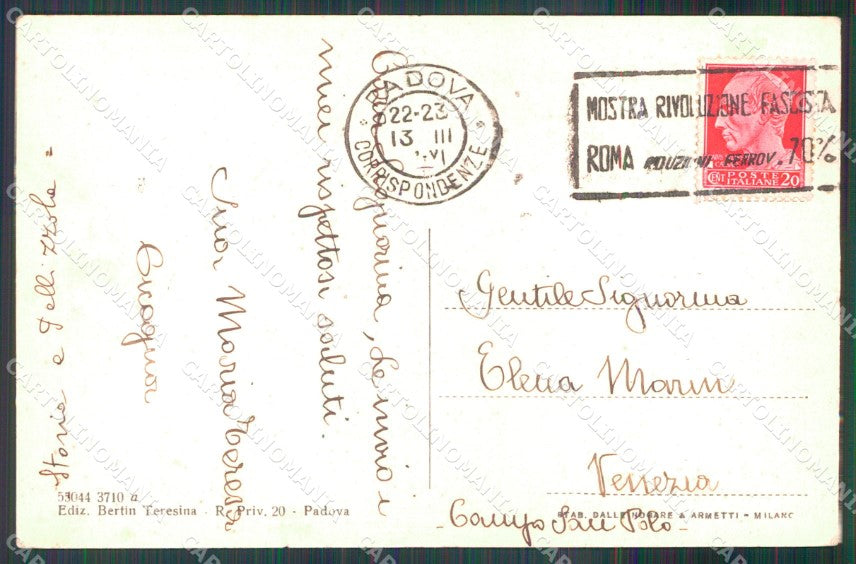 PADOVA
22-23
13 III
XVI
CORRISPONDENZE
MOSTRA RIVOLUZIONE FASCISTA
ROMA RIDUZIONI FERROV. 70%
CENT POSTE ITALIANE 20
Cara Signorina, Le invio i
miei rispettosi saluti.
Suor Maria Teresa
Cicogna
Storie e Pellizzola =
Gentile Signorina
Elena Marin
Venezia
Campo San Polo
53044 3710 a
Ediz. Bertin Teresina - R. Priv. 20 - Padova
STAB. DALLE NOGARE & ARMETTI - MILANO
CARTOLINOMANIA